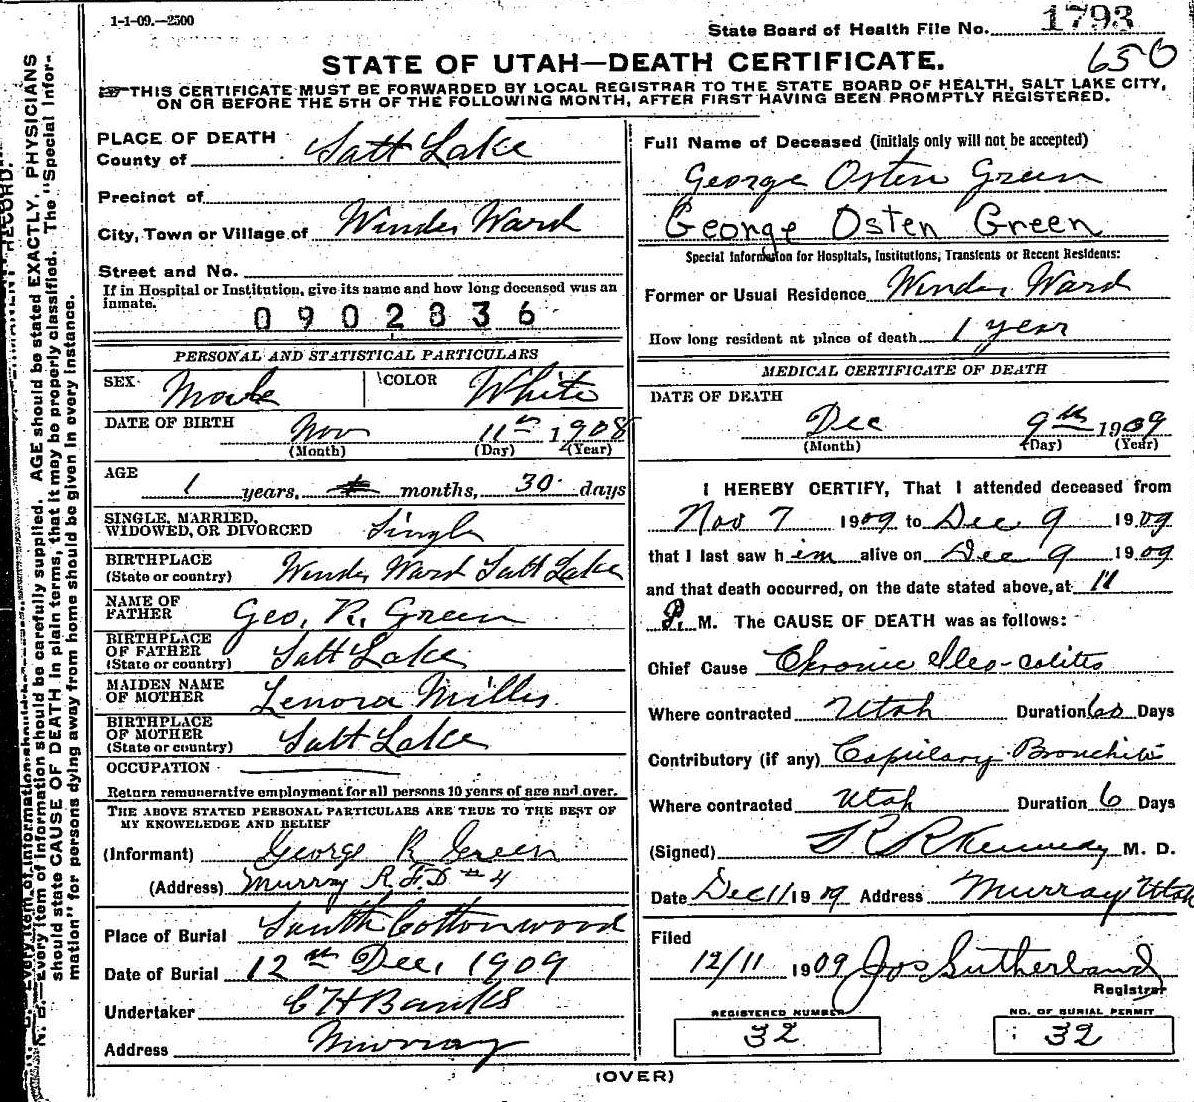 1-1-09.—2500
State Board of Health File No. 1793
650
STATE OF UTAH—DEATH CERTIFICATE.
THIS CERTIFICATE MUST BE FORWARDED BY LOCAL REGISTRAR TO THE STATE BOARD OF HEALTH, SALT LAKE CITY,
ON OR BEFORE THE 5TH OF THE FOLLOWING MONTH, AFTER FIRST HAVING BEEN PROMPTLY REGISTERED.
PLACE OF DEATH
County of Salt Lake
Precinct of
City, Town or Village of Winder Ward
Street and No.
If in Hospital or Institution, give its name and how long deceased was an
inmate.
0902836
PERSONAL AND STATISTICAL PARTICULARS
SEX Male COLOR White
DATE OF BIRTH Nov 11th 1908
(Month) (Day) (Year)
AGE
1 years, months, 30 days
SINGLE, MARRIED,
WIDOWED, OR DIVORCED Single
BIRTHPLACE
(State or country) Winder Ward Salt Lake
NAME OF
FATHER Geo. R. Green
BIRTHPLACE
OF FATHER
(State or country) Salt Lake
MAIDEN NAME
OF MOTHER Lenora Miller
BIRTHPLACE
OF MOTHER
(State or country) Salt Lake
OCCUPATION
Return remunerative employment for all persons 10 years of age and over.
THE ABOVE STATED PERSONAL PARTICULARS ARE TRUE TO THE BEST OF
MY KNOWLEDGE AND BELIEF
(Informant) George R Green
(Address) Murray R F D #4
Place of Burial South Cottonwood
Date of Burial 12th Dec, 1909
Undertaker C H Banks
Address Murray
Full Name of Deceased (initials only will not be accepted)
George Osten Green
George Osten Green
Special Information for Hospitals, Institutions, Transients or Recent Residents:
Former or Usual Residence Winder Ward
How long resident at place of death 1 year
MEDICAL CERTIFICATE OF DEATH
DATE OF DEATH
Dec 9th 1909
(Month) (Day) (Year)
I HEREBY CERTIFY, That I attended deceased from
Nov 7 1909 to Dec 9 1909
that I last saw him alive on Dec 9 1909
and that death occurred, on the date stated above, at 11
P. M. The CAUSE OF DEATH was as follows:
Chief Cause Chronic Ileo-colitis
Where contracted Utah Duration 60 Days
Contributory (if any) Capilary Bronchitis
Where contracted Utah Duration 6 Days
(Signed) Kennedy M. D.
Date Dec 11 1909 Address Murray Utah
Filed
12/11 1909 Jos Sutherland
Registrar
REGISTERED NUMBER
32
NO. OF BURIAL PERMIT
32
(OVER)
N. B.—Every item of information should be carefully supplied. AGE should be stated EXACTLY. PHYSICIANS
should state CAUSE OF DEATH in plain terms, that it may be properly classified. The "Special Infor-
mation" for persons dying away from home should be given in every instance.